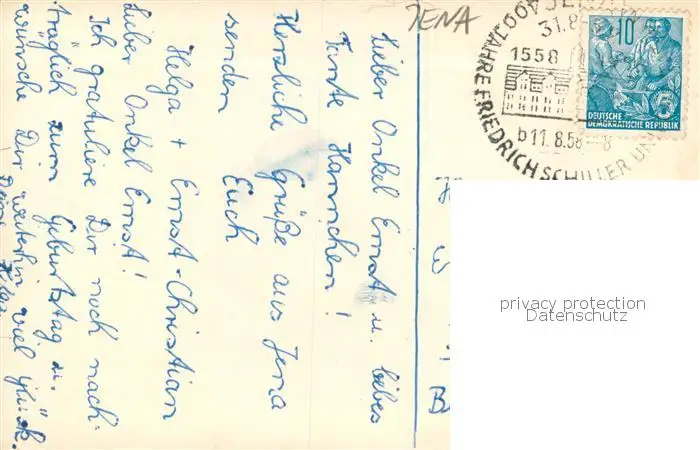 Lieber Onkel Ernst u. liebes
Tante Hannchen!
Herzliche Grüße aus Jena
senden Euch
Helga + Ernst-Christian
Lieber Onkel Ernst!
Ich gratuliere Dir noch nach-
träglich zum Geburtstag u.
wünsche Dir weiterhin viel Glück.
Deine
JENA
400 JAHRE FRIEDRICH SCHILLER UNI
31.8.
1558
b11.8.58-8
10
5
DEUTSCHE
DEMOKRATISCHE REPUBLIK
W
B
privacy protection
Datenschutz